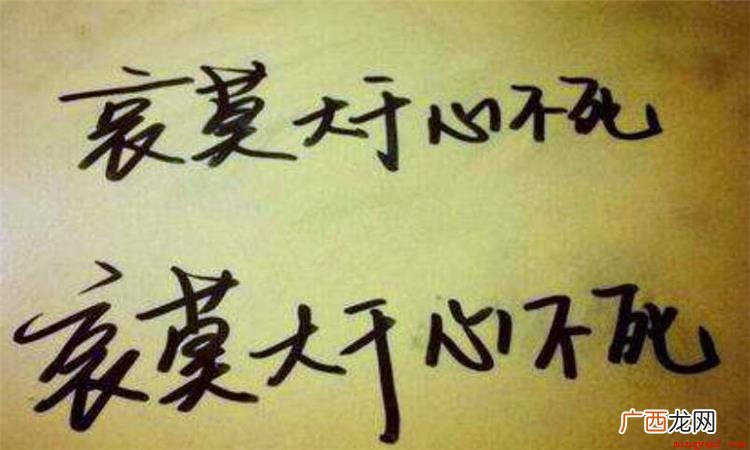 哀莫大于心不死
哀莫大于心不死
广西龙网